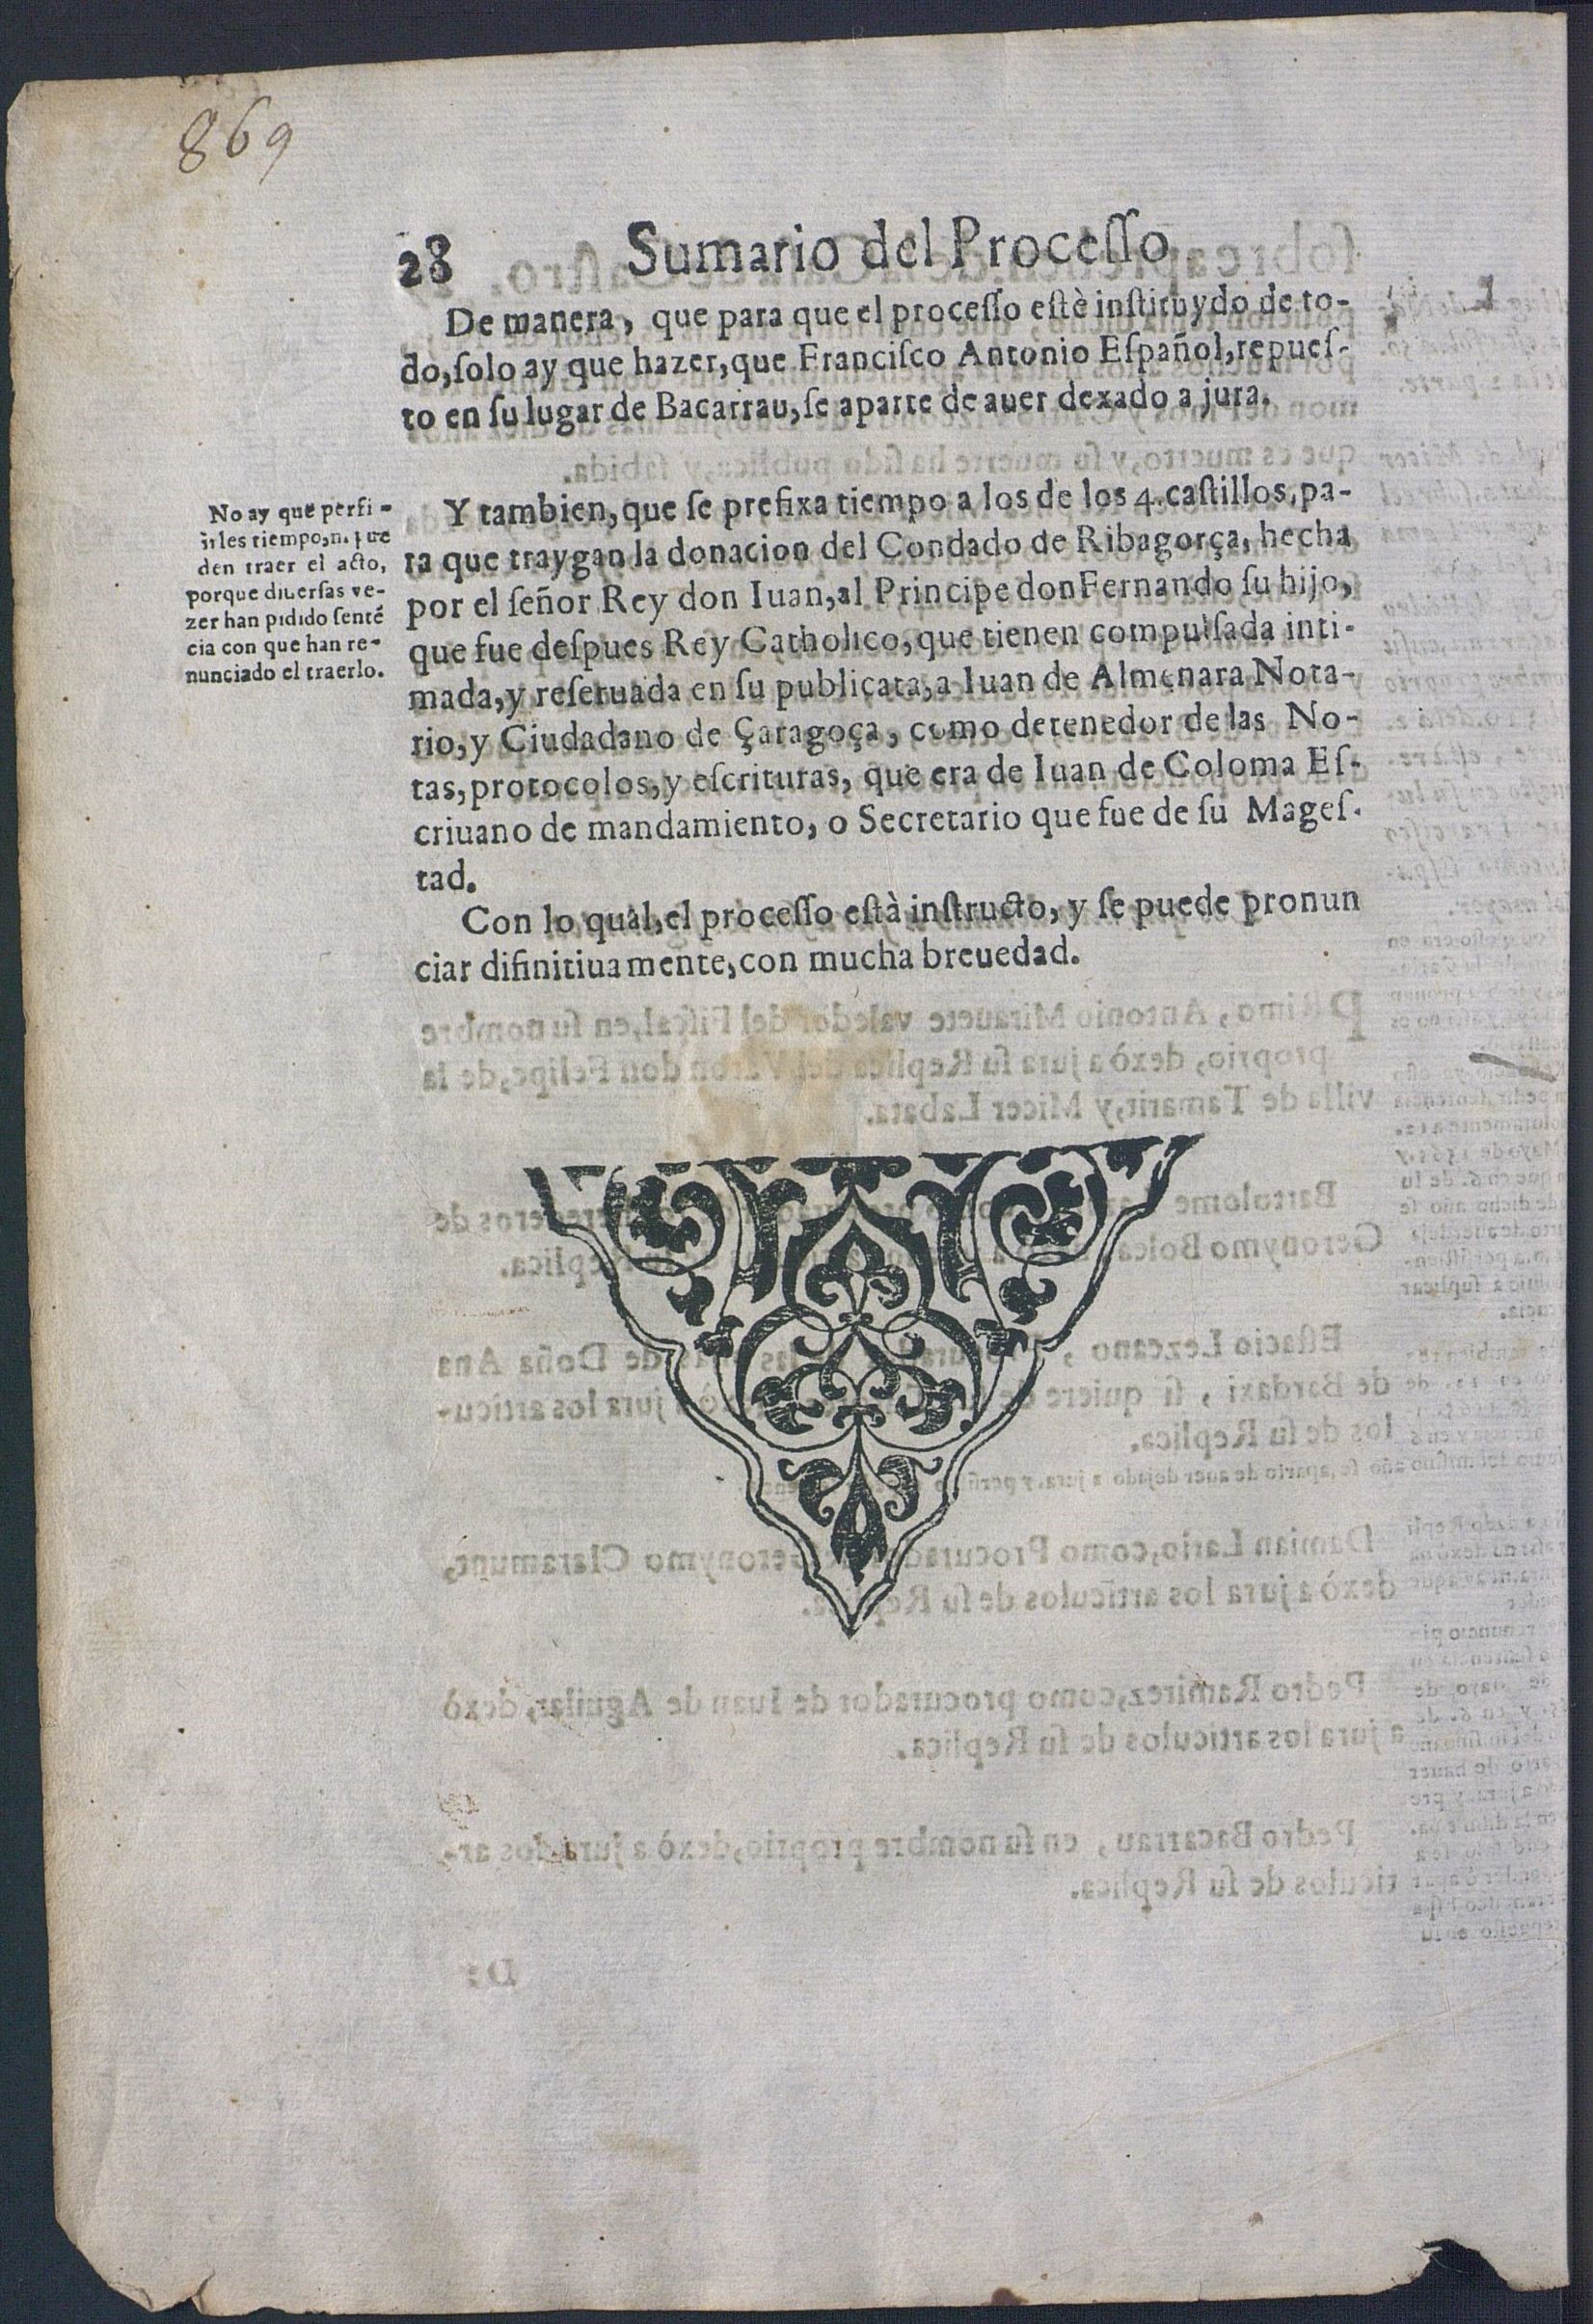 869
28 Sumario del Proceſſo
De manera, que para que el proceſſo eſtè inſtituydo de to-
do, ſolo ay que hazer, que Franciſco Antonio Eſpañol, repueſ-
to en ſu lugar de Bacarrau, ſe aparte de auer dexado a jura.
No ay que perfi-
tiempo,
den traer el acto,
porque diuerſas ve-
zer han pidido ſenté
cia con que han re-
nunciado el traerlo.
Y tambien, que ſe prefixa tiempo a los de los 4. caſtillos, pa-
ra que traygan la donacion del Condado de Ribagorça, hecha
por el ſeñor Rey don Iuan, al Principe don Fernando ſu hijo,
que fue deſpues Rey Catholico, que tienen compulſada inti-
mada, y reſeruada en ſu publicata, a Iuan de Almenara Nota-
rio, y Ciudadano de Çaragoça, como detenedor de las No-
tas, protocolos, y eſcrituras, que era de Iuan de Coloma Eſ-
criuano de mandamiento, o Secretario que fue de ſu Mageſ-
tad.
Con lo qual, el proceſſo eſtà inſtructo, y ſe puede pronun
ciar difinitiuamente, con mucha breuedad.